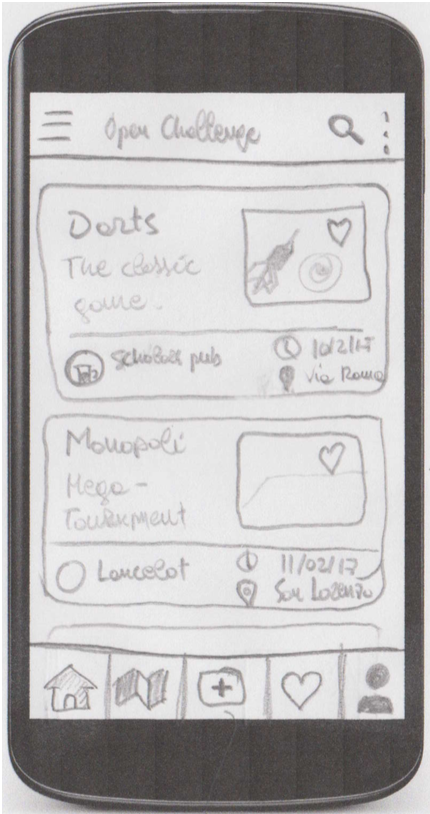 Open Challenge
Darts
The classic
game.
Scholars pub
10/2/17
via Roma
Monopoli
Mega-
Tournament
Lancelot
11/02/17
San Lorenzo